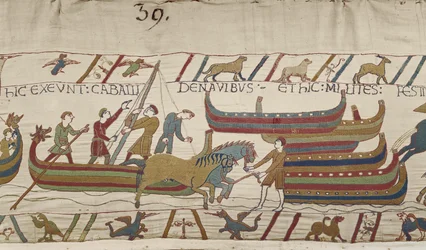 39.
HIC EXEUNT: CABALLI DENAVIBUS - ETHIC: MILITES: FESTI